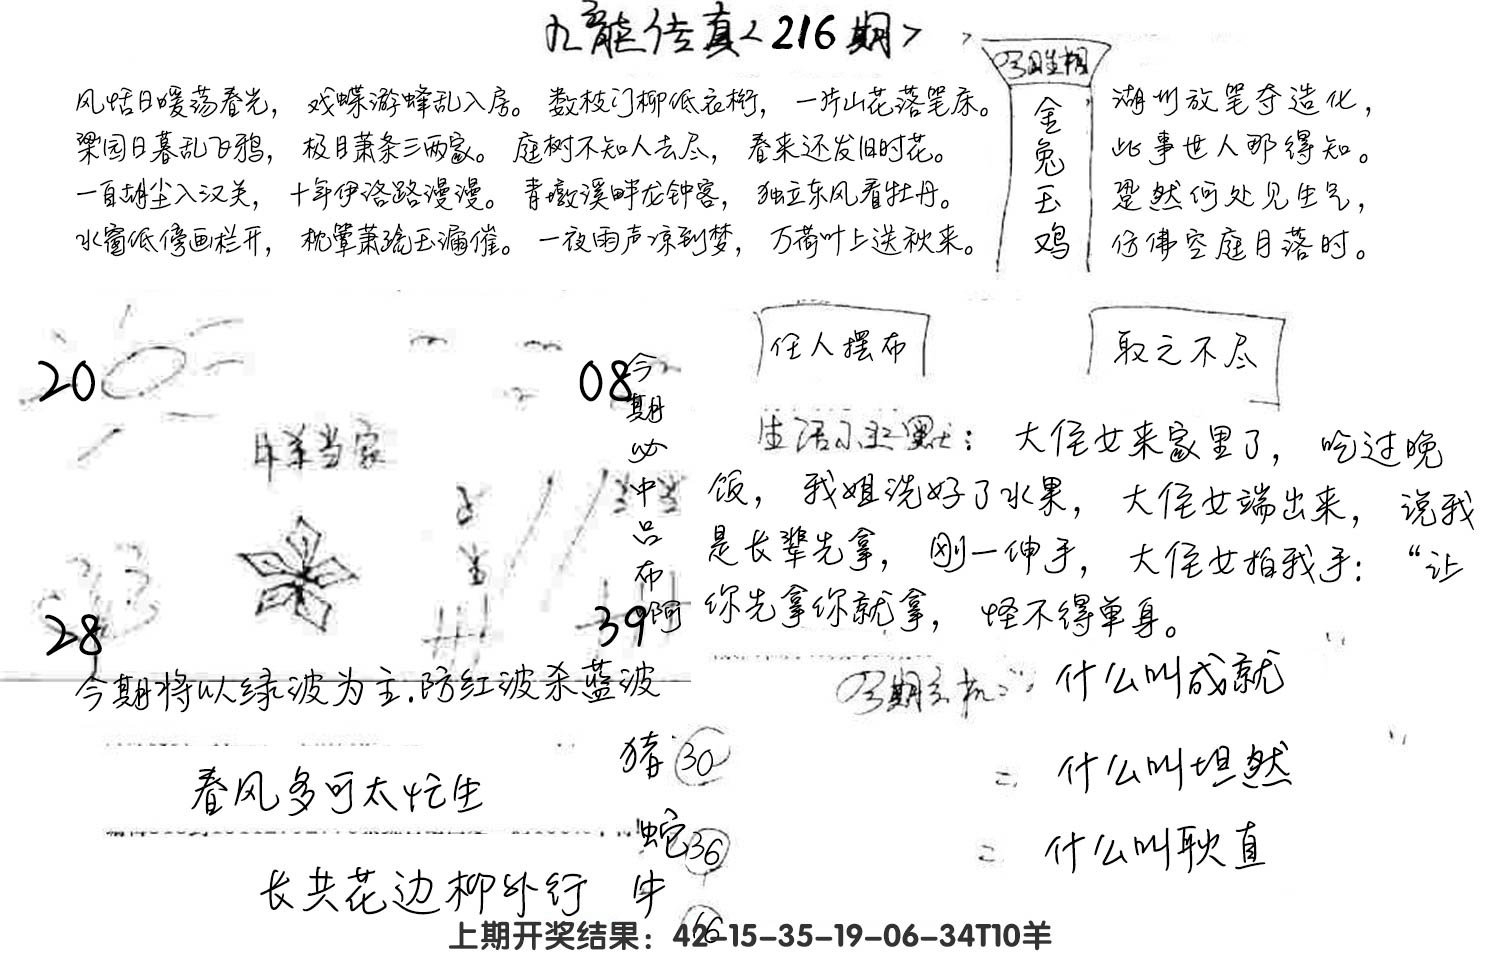 九龙传真<216期>
今期生相
金兔玉鸡
风恬日暖荡春光，戏蝶游蜂乱入房。数枝门柳低衣桁，一片山花落笔床。
梁园日暮乱飞鸦，极目萧条三两家。庭树不知人去尽，春来还发旧时花。
一自胡尘入汉关，十年伊洛路漫漫。青墩溪畔龙钟客，独立东风看牡丹。
水窗低傍画栏开，枕簟萧疏玉漏催。一夜雨声凉到梦，万荷叶上送秋来。
湖州放笔夺造化，
此事世人那得知。
跫然何处见生气，
仿佛空庭月落时。
20
08
当家
28
39
今期必中吕布啊
今期将以绿波为主.防红波杀蓝波
任人摆布
取之不尽
生活小幽默：大侄女来家里了，吃过晚
饭，我姐洗好了水果，大侄女端出来，说我
是长辈先拿，刚一伸手，大侄女拍我手：“让
你先拿你就拿，怪不得单身。
今期玄机：什么叫成就
什么叫坦然
什么叫耿直
春风多可太忙生
长共花边柳外行
猪 30
蛇 36
牛 16
上期开奖结果：42-15-35-19-06-34T10羊